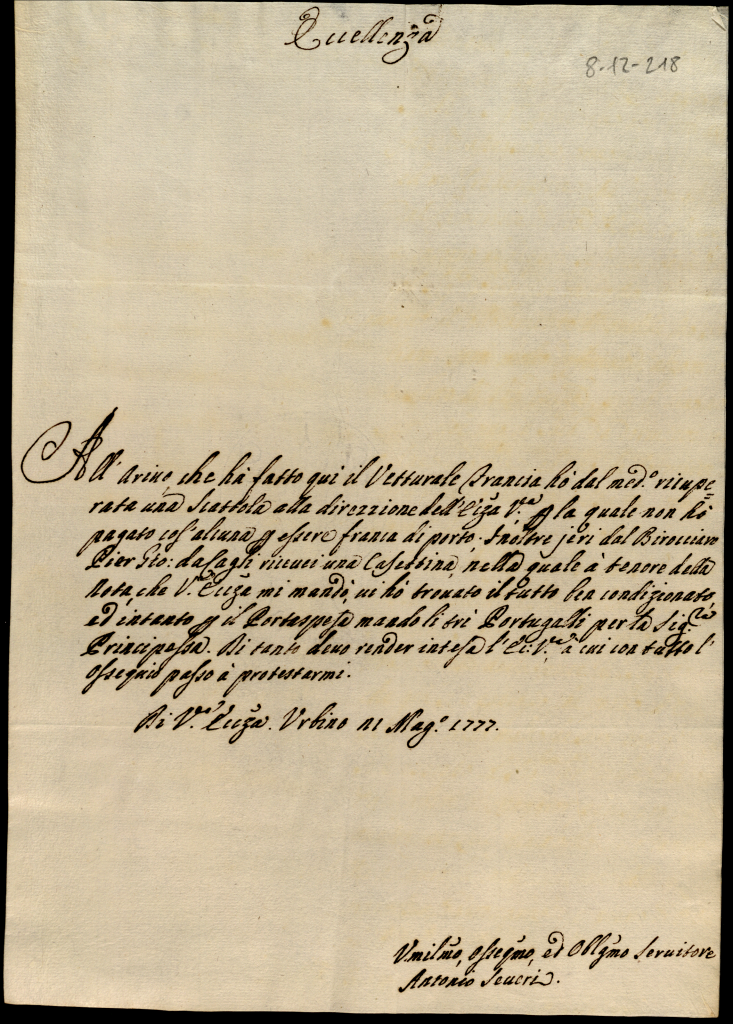 Eccellenza
8-12-218
All' arivo, che hà fatto qui il Vetturale Brancia hò dal med.º ricupe=
rata una Scattola alla direzzione dell'Ecc̃za V.ª p la quale non hò
pagato cos' alcuna p essere franca di porto. Inoltre jeri dal Birocciaro
Pier Gio: da Cagli riceuei una Cassettina, nella quale à tenore della
Nota, che V.ª Ecc̃za mi mandò, ui hò trouato il tutto ben condizionato,
ed intanto p il Portaspesa mando li trè Portugalli per la Sig.ra
Principessa. Di tanto deuo render intesa l'Ec: V.ª à cui con tutto l'
ossequio passo à protestarmi.
Di V.ª Ecc̃za. Vrbino 21 Mag.º 1777.
Vmilm̃o, ossequm̃o, ed Obbligm̃o Seruitore
Antonio Seueri.